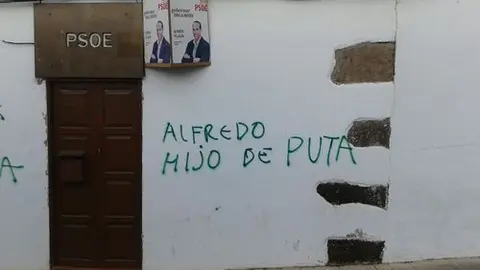 PSOE
PSOE
ALFREDO
HIJO DE PUTA
A